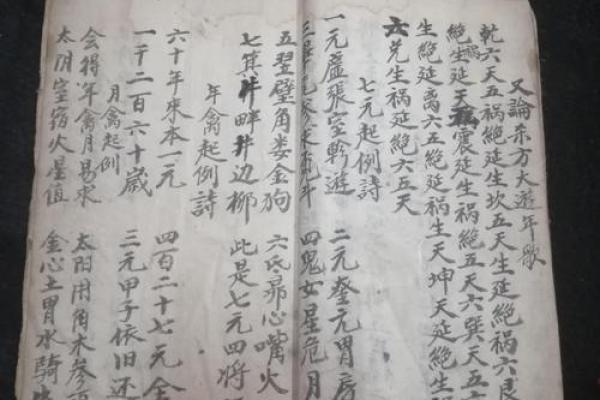 又論东方大遊年歌
乾六天五祸絶延生坎五天生延絶祸六艮
絶祸生延天震延生祸絶五天六巽天五六
生絶延离六五絶延祸生天坤天延絶生
六兑生祸延絶六五天
七元起例詩
一元虛張室軫遊 二元奎元胃房
三畢尾参 斗 四鬼女星危月
五翌壁角娄金狗 六氐昴心嘴火
七箕 畔井边柳 此是七元四将
年禽起例詩
六十年來本一元 四百二十七元全
一千二百六十歲 三元甲子依旧还
月禽起例
会得年禽月易求 太阳用角木参
太阴室宿火星值 金心土胃水騎